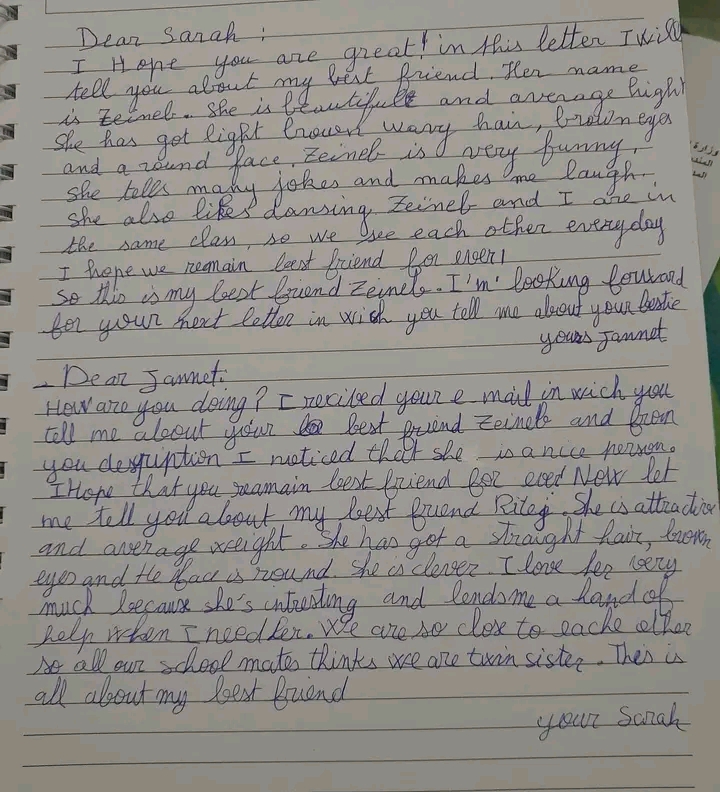 Dear Sarah :
I Hope you are great! in this letter I will
tell you about my best friend. Her name
is Zeineb. She is beautifull and average hight
She has got light brown wavy hair, brown eyes
and a round face. Zeineb is very funny,
She tells many jokes and makes me laugh.
She also likes dansing. Zeineb and I are in
the same class, so we see each other everyday
I hope we remain best friend for ever!
So this is my best friend Zeineb. I'm looking forward
for your next letter in wich you tell me about your bestie
yours Jannet
- Dear Jannet:
How are you doing? I recibed your e mail in wich you
tell me about your best friend Zeineb and from
you desrription I noticed that she is a nice person.
I Hope that you reamain best friend for ever Now let
me tell you about my best friend Ritej. She is attractive
and average weight. She has got a straight hair, brown
eyes and He face is round. She is clever. I love her very
much because she's intresting and lends me a hand of
help when I need her. We are so close to eache other
so all our school mates thinks we are twin sister. Thes is
all about my best friend
your Sarah
وزارة